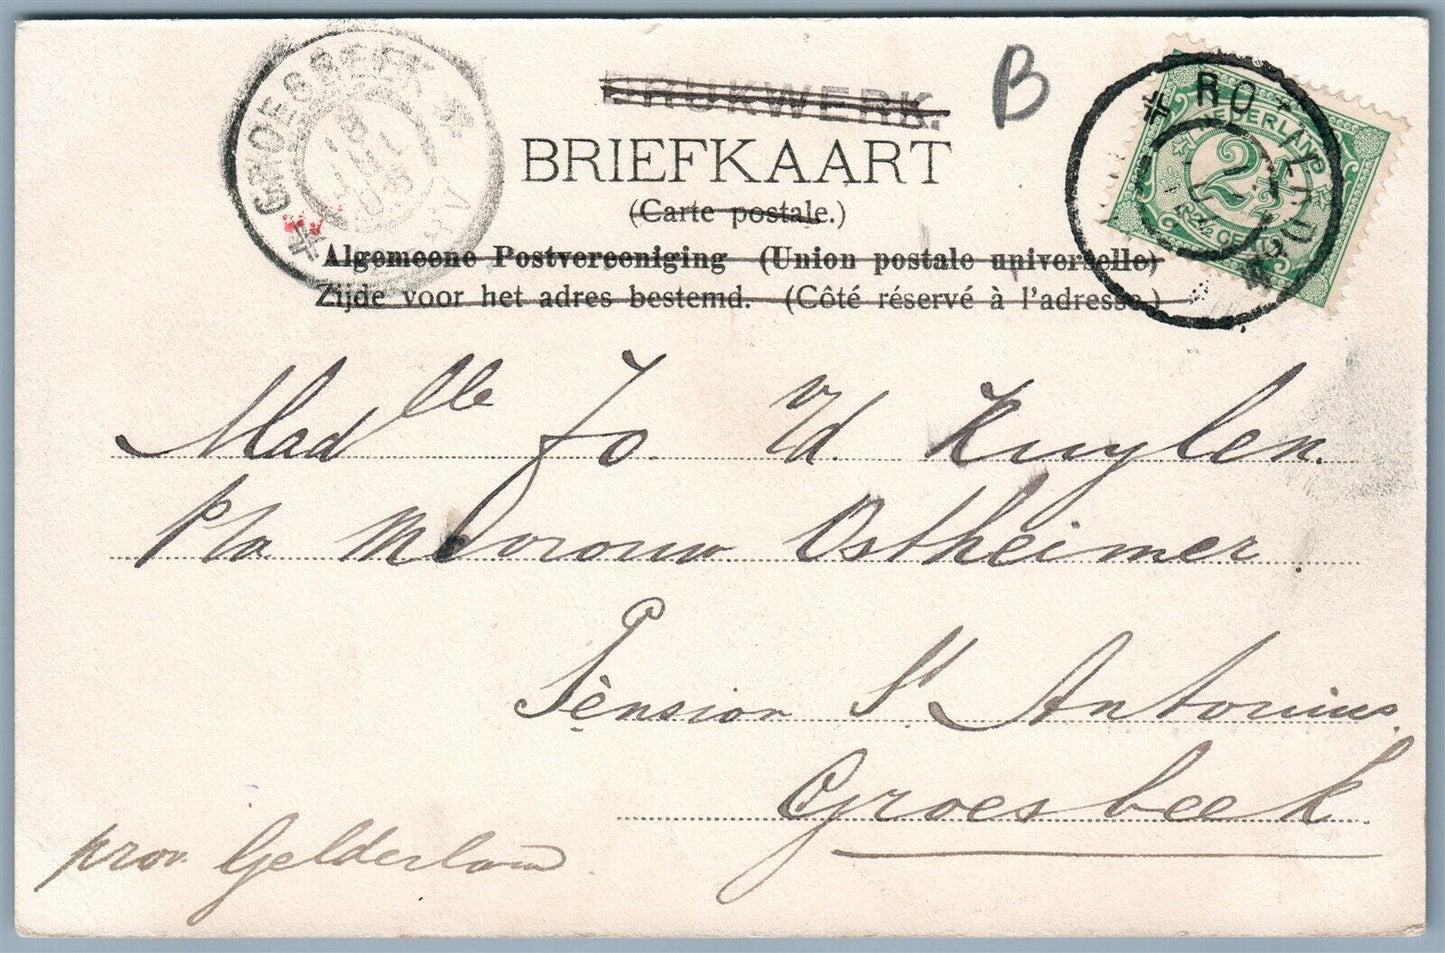 GROESBEEK
DRUKWERK.
B
BRIEFKAART
(Carte postale.)
Algemeene Postvereeniging (Union postale universelle)
Zijde voor het adres bestemd. (Côté réservé à l'adresse.)
NEDERLAND
2½
Madlle Jo. v/d. Kuylen.
p/a Mevrouw Ostheimer.
Pènsion St Antonius.
Groesbeek.
prov. Gelderland.